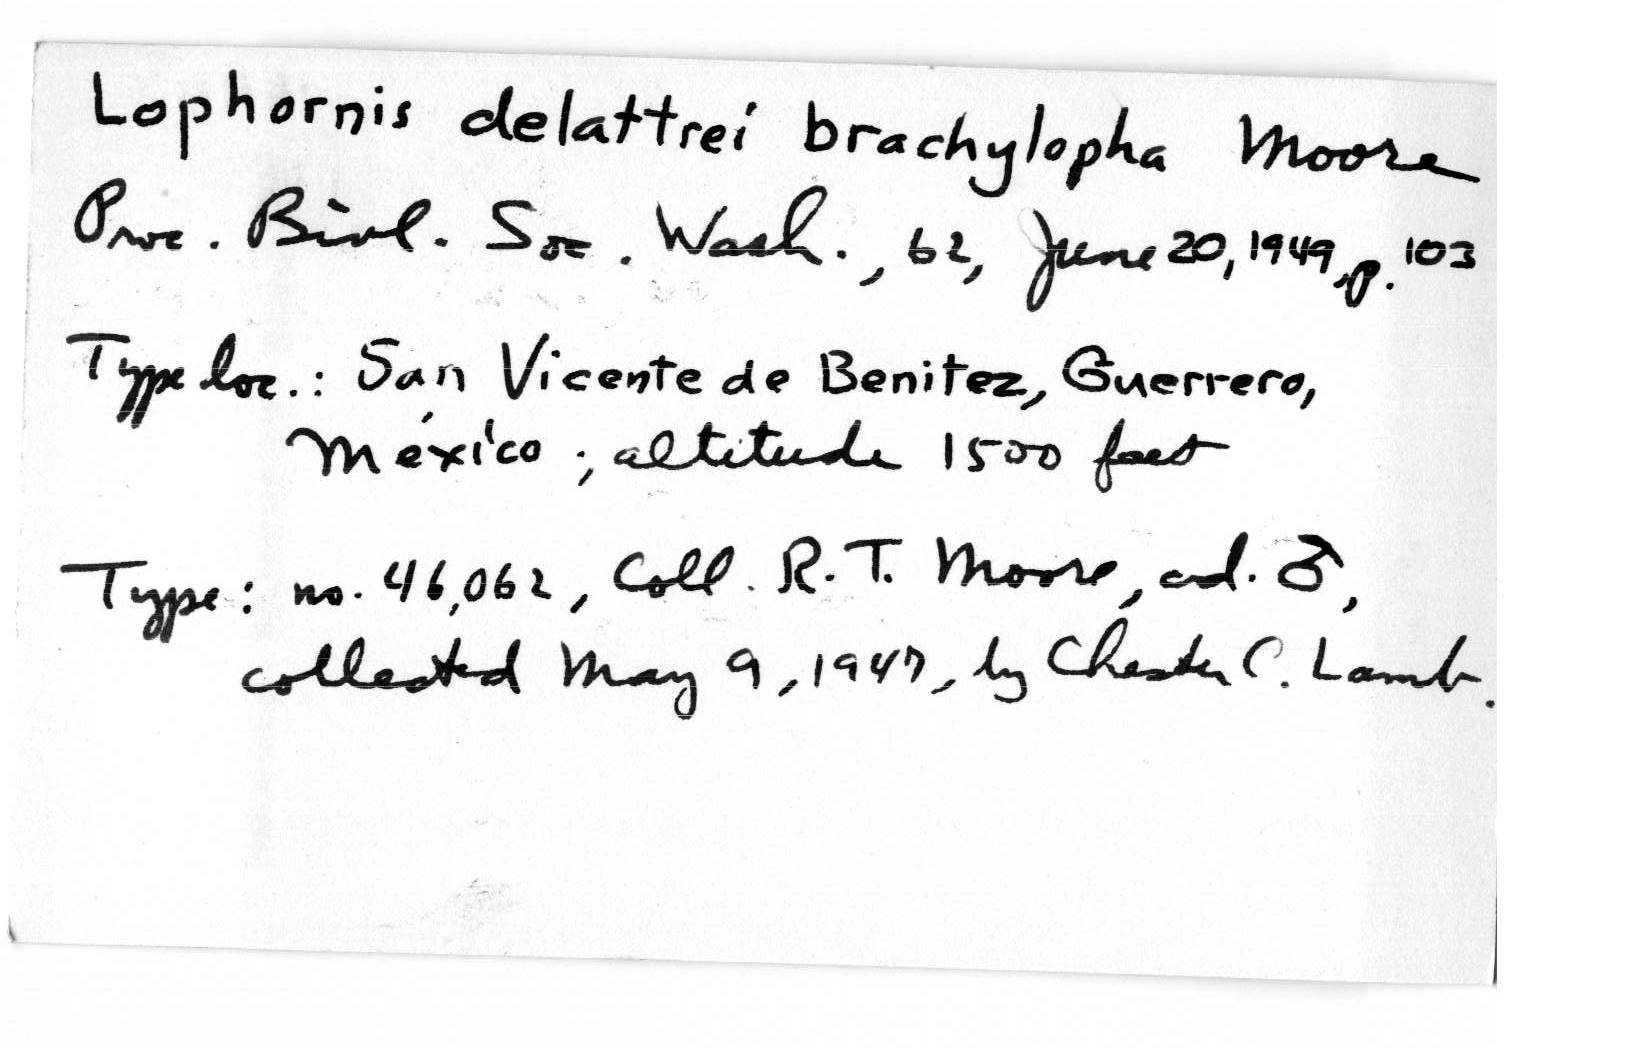 Lophornis delattrei brachylopha Moore
Proc. Biol. Soc. Wash., 62, June 20, 1949, p. 103
Type loc.: San Vicente de Benitez, Guerrero,
México; altitude 1500 feet
Type: no. 46,062, Coll. R. T. Moore, ad. ♂,
collected May 9, 1947, by Chester C. Lamb.